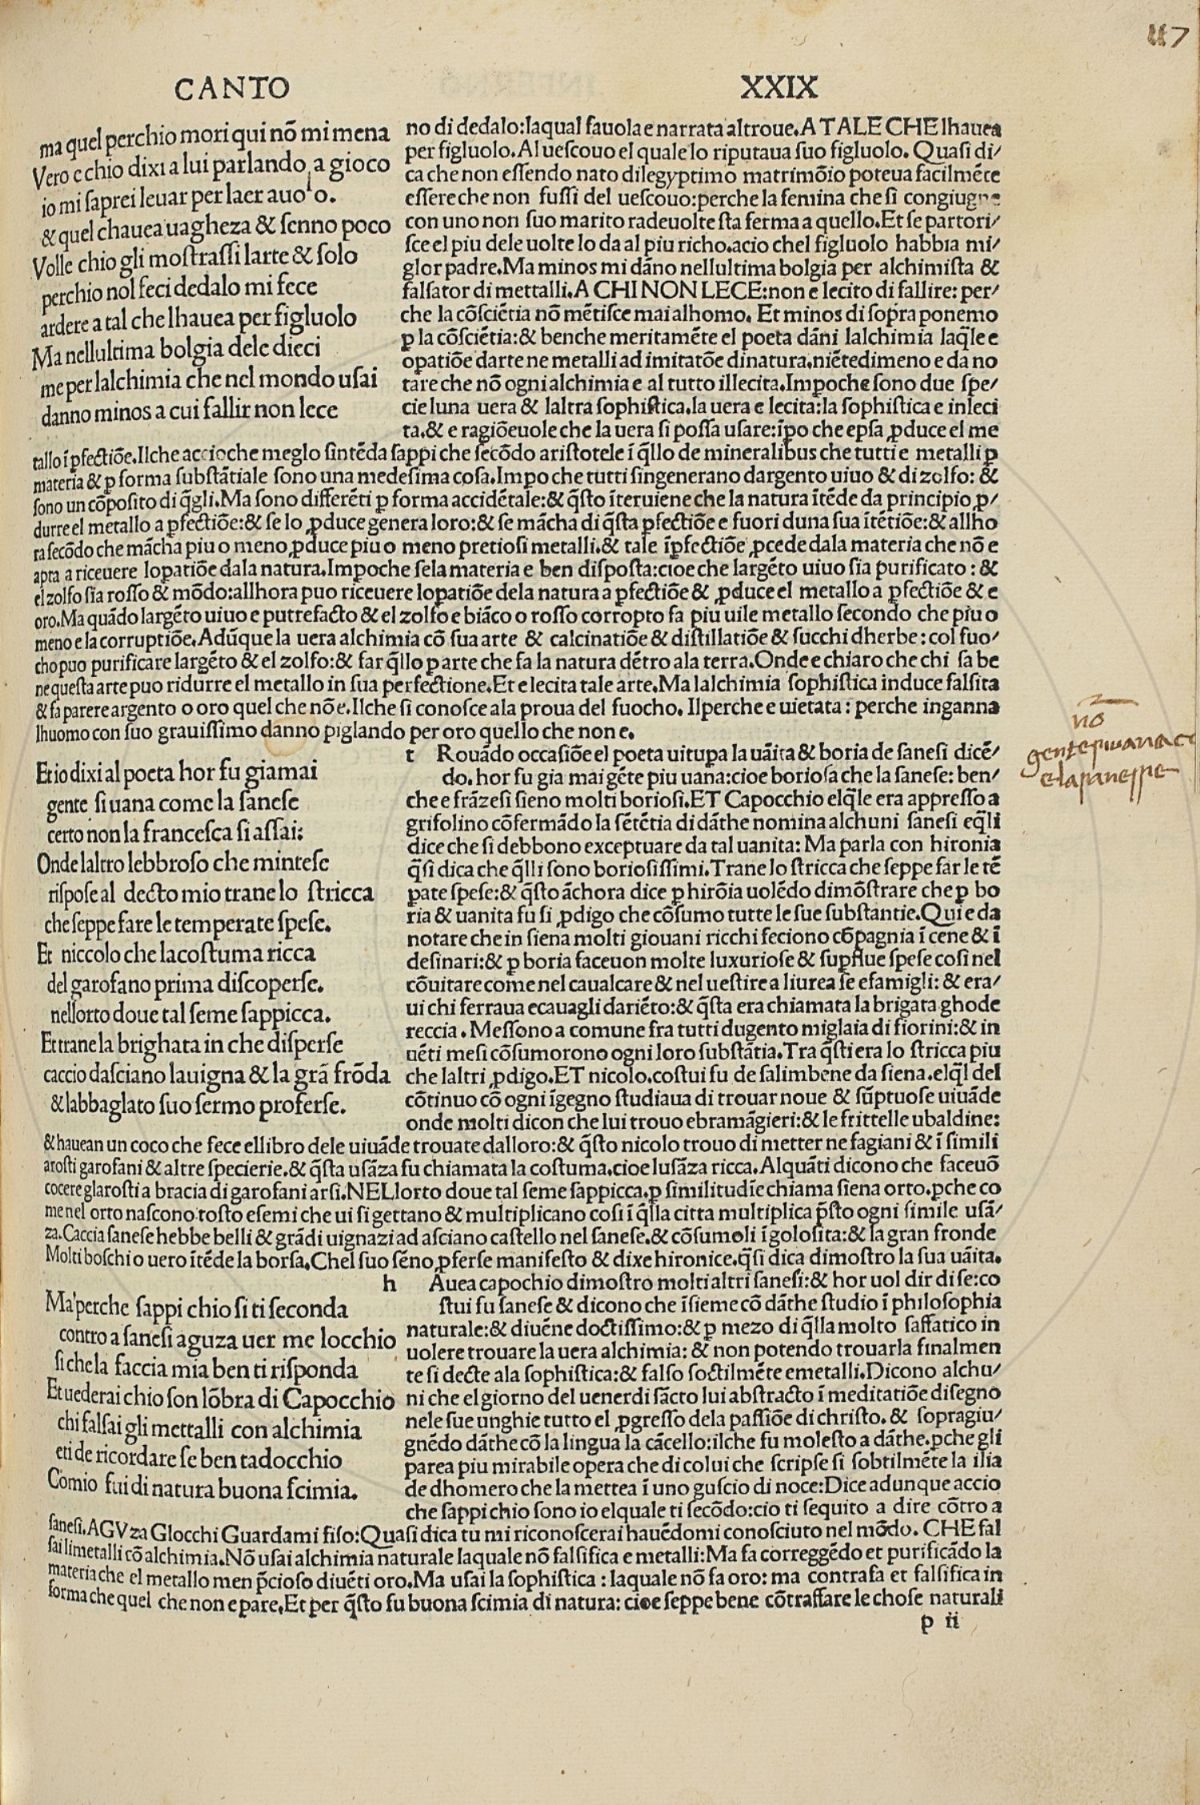 117
CANTO XXIX
ma quel perchio mori qui nõ mi mena
Vero e chio dixi a lui parlando a gioco
io mi saprei leuar per laer auolo.
& quel chauea uagheza & senno poco
Volle chio gli mostrassi larte & solo
perchio nol feci dedalo mi fece
ardere a tal che lhauea per figluolo
Ma nellultima bolgia dele dieci
me per lalchimia che nel mondo usai
danno minos a cui fallir non lece
no di dedalo:laqual fauola e narrata altroue.A TALE CHE lhauea
per figluolo.Al uescouo el quale lo riputaua suo figluolo. Quasi di/
ca che non essendo nato dilegyptimo matrimõio poteua facilmẽte
essere che non fussi del uescouo:perche la femina che si congiugne
con uno non suo marito radeuolte sta ferma a quello.Et se partori/
sce el piu dele uolte lo da al piu richo.acio chel figluolo habbia mi/
glor padre.Ma minos mi dãno nellultima bolgia per alchimista &
falsator di mettalli.A CHI NON LECE:non e lecito di fallire: per/
che la cõsciẽtia nõ mẽtisce mai alhomo. Et minos di sopra ponemo
ꝑ la cõsciẽtia:& benche meritamẽte el poeta dãni lalchimia laq̃le e
opatiõe darte ne metalli ad imitatõe dinatura.niẽtedimeno e da no
tare che nõ ogni alchimia e al tutto illecita.Impoche sono due spe/
cie luna uera & laltra sophistica.la uera e lecita:la sophistica e inleci
ta.& e ragiõeuole che la uera si possa usare:ĩpo che epsa ꝓduce el me
tallo ĩ ꝑfectiõe.Ilche accioche meglo sintẽda sappi che secõdo aristotele ĩ q̃llo de mineralibus che tutti e metalli ꝑ
materia & ꝑ forma substãtiale sono una medesima cosa.Impo che tutti singenerano dargento uiuo & di zolfo: &
sono un cõposito di q̃gli.Ma sono differẽti ꝑ forma accidẽtale:& q̃sto ĩteruiene che la natura ĩtẽde da principio ꝓ/
durre el metallo a ꝑfectiõe:& se lo ꝓduce genera loro:& se mãcha di q̃sta ꝑfectiõe e fuori duna sua ĩtẽtiõe:& allho
ra secõdo che mãcha piu o meno ꝓduce piu o meno pretiosi metalli.& tale ĩꝑfectiõe ꝓcede dala materia che nõ e
apta a riceuere lopatiõe dala natura.Impoche se la materia e ben disposta:cioe che largẽto uiuo sia purificato : &
el zolfo sia rosso & mõdo:allhora puo riceuere lopatiõe dela natura a ꝑfectiõe & ꝓduce el metallo a ꝑfectiõe & e
oro.Ma quãdo largẽto uiuo e putrefacto & el zolfo e biãco o rosso corropto fa piu uile metallo secondo che piu o
meno e la corruptiõe.Adũque la uera alchimia cõ sua arte & calcinatiõe & distillatiõe & succhi dherbe : col fuo/
cho puo purificare largẽto & el zolfo:& far q̃llo ꝑ arte che fa la natura dẽtro ala terra.Onde e chiaro che chi sa be
ne questa arte puo ridurre el metallo in sua perfectione.Et e lecita tale arte.Ma lalchimia sophistica induce falsita
& fa parere argento o oro quel che nõ e.Ilche si conosce ala proua del fuocho. Ilperche e uietata : perche inganna
lhuomo con suo grauissimo danno piglando per oro quello che non e.
nõ
gente piu vana
e la sanese
Et io dixi al poeta hor fu giamai
gente si uana come la sanese
certo non la francesca si assai:
Onde laltro lebbroso che mintese
rispose al decto mio trane lo stricca
che seppe fare le temperate spese.
Et niccolo che lacostuma ricca
del garofano prima discoperse.
nellorto doue tal seme sappicca.
Et trane la brighata in che disperse
caccio dasciano lauigna & la grã frõda
& labbaglato suo sermo proferse.
t Rouãdo occasiõe el poeta uitupa la uãita & boria de sanesi dicẽ/
do. hor fu gia mai gẽte piu uana:cioe boriosa che la sanese: ben/
che e frãzesi sieno molti boriosi.ET Capocchio elq̃le era appresso a
grifolino cõfermãdo la sẽtẽtia di dãthe nomina alchuni sanesi eq̃li
dice che si debbono exceptuare da tal uanita: Ma parla con hironia
q̃si dica che q̃lli sono boriosissimi.Trane lo stricca che seppe far le tẽ
pate spese:& q̃sto ãchora dice ꝑ hirõia uolẽdo dimõstrare che ꝑ bo
ria & uanita fu si ꝓdigo che cõsumo tutte le sue substantie.Qui e da
notare che in siena molti giouani ricchi feciono cõpagnia ĩ cene & ĩ
desinari:& ꝑ boria faceuon molte luxuriose & supflue spese cosi nel
cõuitare come nel caualcare & nel uestire a liurea se e famigli: & era/
ui chi ferraua e cauagli dariẽto:& q̃sta era chiamata la brigata ghode
reccia . Messono a comune fra tutti dugento miglaia di fiorini:& in
uẽti mesi cõsumorono ogni loro substãtia.Tra q̃sti era lo stricca piu
che laltri ꝓdigo.ET nicolo.costui fu de salimbene da siena.elq̃l del
cõtinuo cõ ogni ĩgegno studiaua di trouar noue & sũptuose uiuãde
onde molti dicon che lui trouo ebramãgieri:& le frittelle ubaldine:
& hauean un coco che fece ellibro dele uiuãde trouate dalloro:& q̃sto nicolo trouo di metter ne fagiani & ĩ simili
arosti garofani & altre specierie.& q̃sta usãza fu chiamata la costuma.cioe lusãza ricca. Alquãti dicono che faceuõ
cocere glarosti a bracia di garofani arsi.NELlorto doue tal seme sappicca.ꝑ similitudĩe chiama siena orto.ꝑche co
me nel orto nascono tosto e semi che ui si gettano & multiplicano cosi ĩ q̃lla citta multiplica p̃sto ogni simile usã/
za.Caccia sanese hebbe belli & grãdi uignazi ad asciano castello nel sanese.& cõsumoli ĩ golosita:& la gran fronde
Molti boschi o uero ĩtẽde la borsa.Chel suo sẽno ꝓferse manifesto & dixe hironice.q̃si dica dimostro la sua uãita.
Ma perche sappi chio si ti seconda
contro a sanesi aguza uer me locchio
si che la faccia mia ben ti risponda
Et uederai chio son lõbra di Capocchio
chi falsai gli mettalli con alchimia
eti de ricordare se ben tadocchio
Comio fui di natura buona scimia.
h Auea capochio dimostro molti altri sanesi:& hor uol dir di se:co
stui fu sanese & dicono che ĩsieme cõ dãthe studio ĩ philosophia
naturale:& diuẽne doctissimo:& ꝑ mezo di q̃lla molto saffatico in
uolere trouare la uera alchimia: & non potendo trouarla finalmen
te si decte ala sophistica:& falso soctilmẽte emetalli.Dicono alchu/
ni che el giorno del uenerdi sãcto lui abstracto ĩ meditatiõe disegno
nele sue unghie tutto el ꝓgresso dela passiõe di christo. & sopragiu/
gnẽdo dãthe cõ la lingua la cãcello:ilche fu molesto a dãthe.ꝑche gli
parea piu mirabile opera che di colui che scripse si sobtilmẽte la ilia
de dhomero che la mettea ĩ uno guscio di noce:Dice adunque accio
che sappi chio sono io elquale ti secõdo:cio ti sequito a dire cõtro a
sanesi.AGVza Glocchi Guardami fiso:Quasi dica tu mi riconoscerai hauẽdomi conosciuto nel mõdo. CHE fal
sai li metalli cõ alchimia.Nõ usai alchimia naturale laquale nõ falsifica e metalli:Ma fa correggẽdo et purificãdo la
materia che el metallo men p̃cioso diuẽti oro.Ma usai la sophistica : laquale nõ fa oro: ma contrafa et falsifica in
forma che quel che non e pare.Et per q̃sto fu buona scimia di natura: cioe seppe bene cõtraffare le chose naturali
p ii